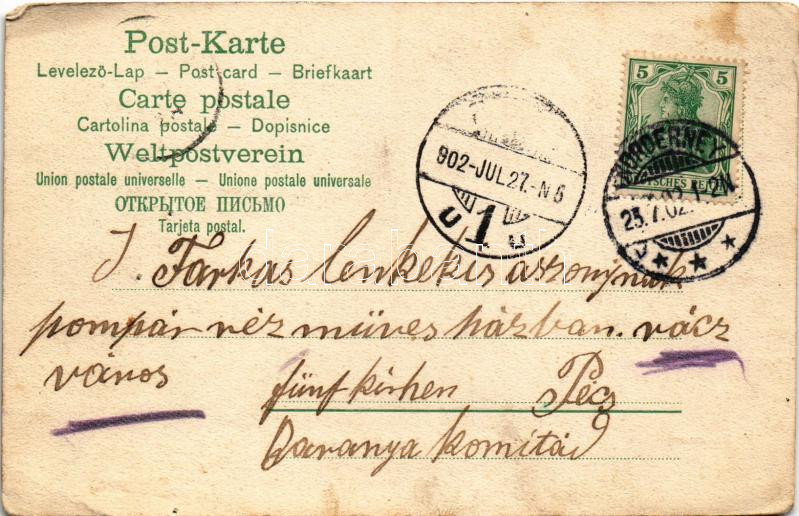 Post-Karte
Levelezö-Lap – Post card – Briefkaart
Carte postale
Cartolina postale – Dopisnice
Weltpostverein
Union postale universelle – Unione postale universale
ОТКРЫТОЕ ПИСЬМО
Tarjeta postal.
5 5
DEUTSCHES REICH
902-JUL27.-N5
U 1 U
NORDERNEY
25.7.02. 1-2N
J. Farkas lenkekis aszonynak
pompár réz müves házban. rácz
város
fünfkirhen Pécs
Baranya komitád